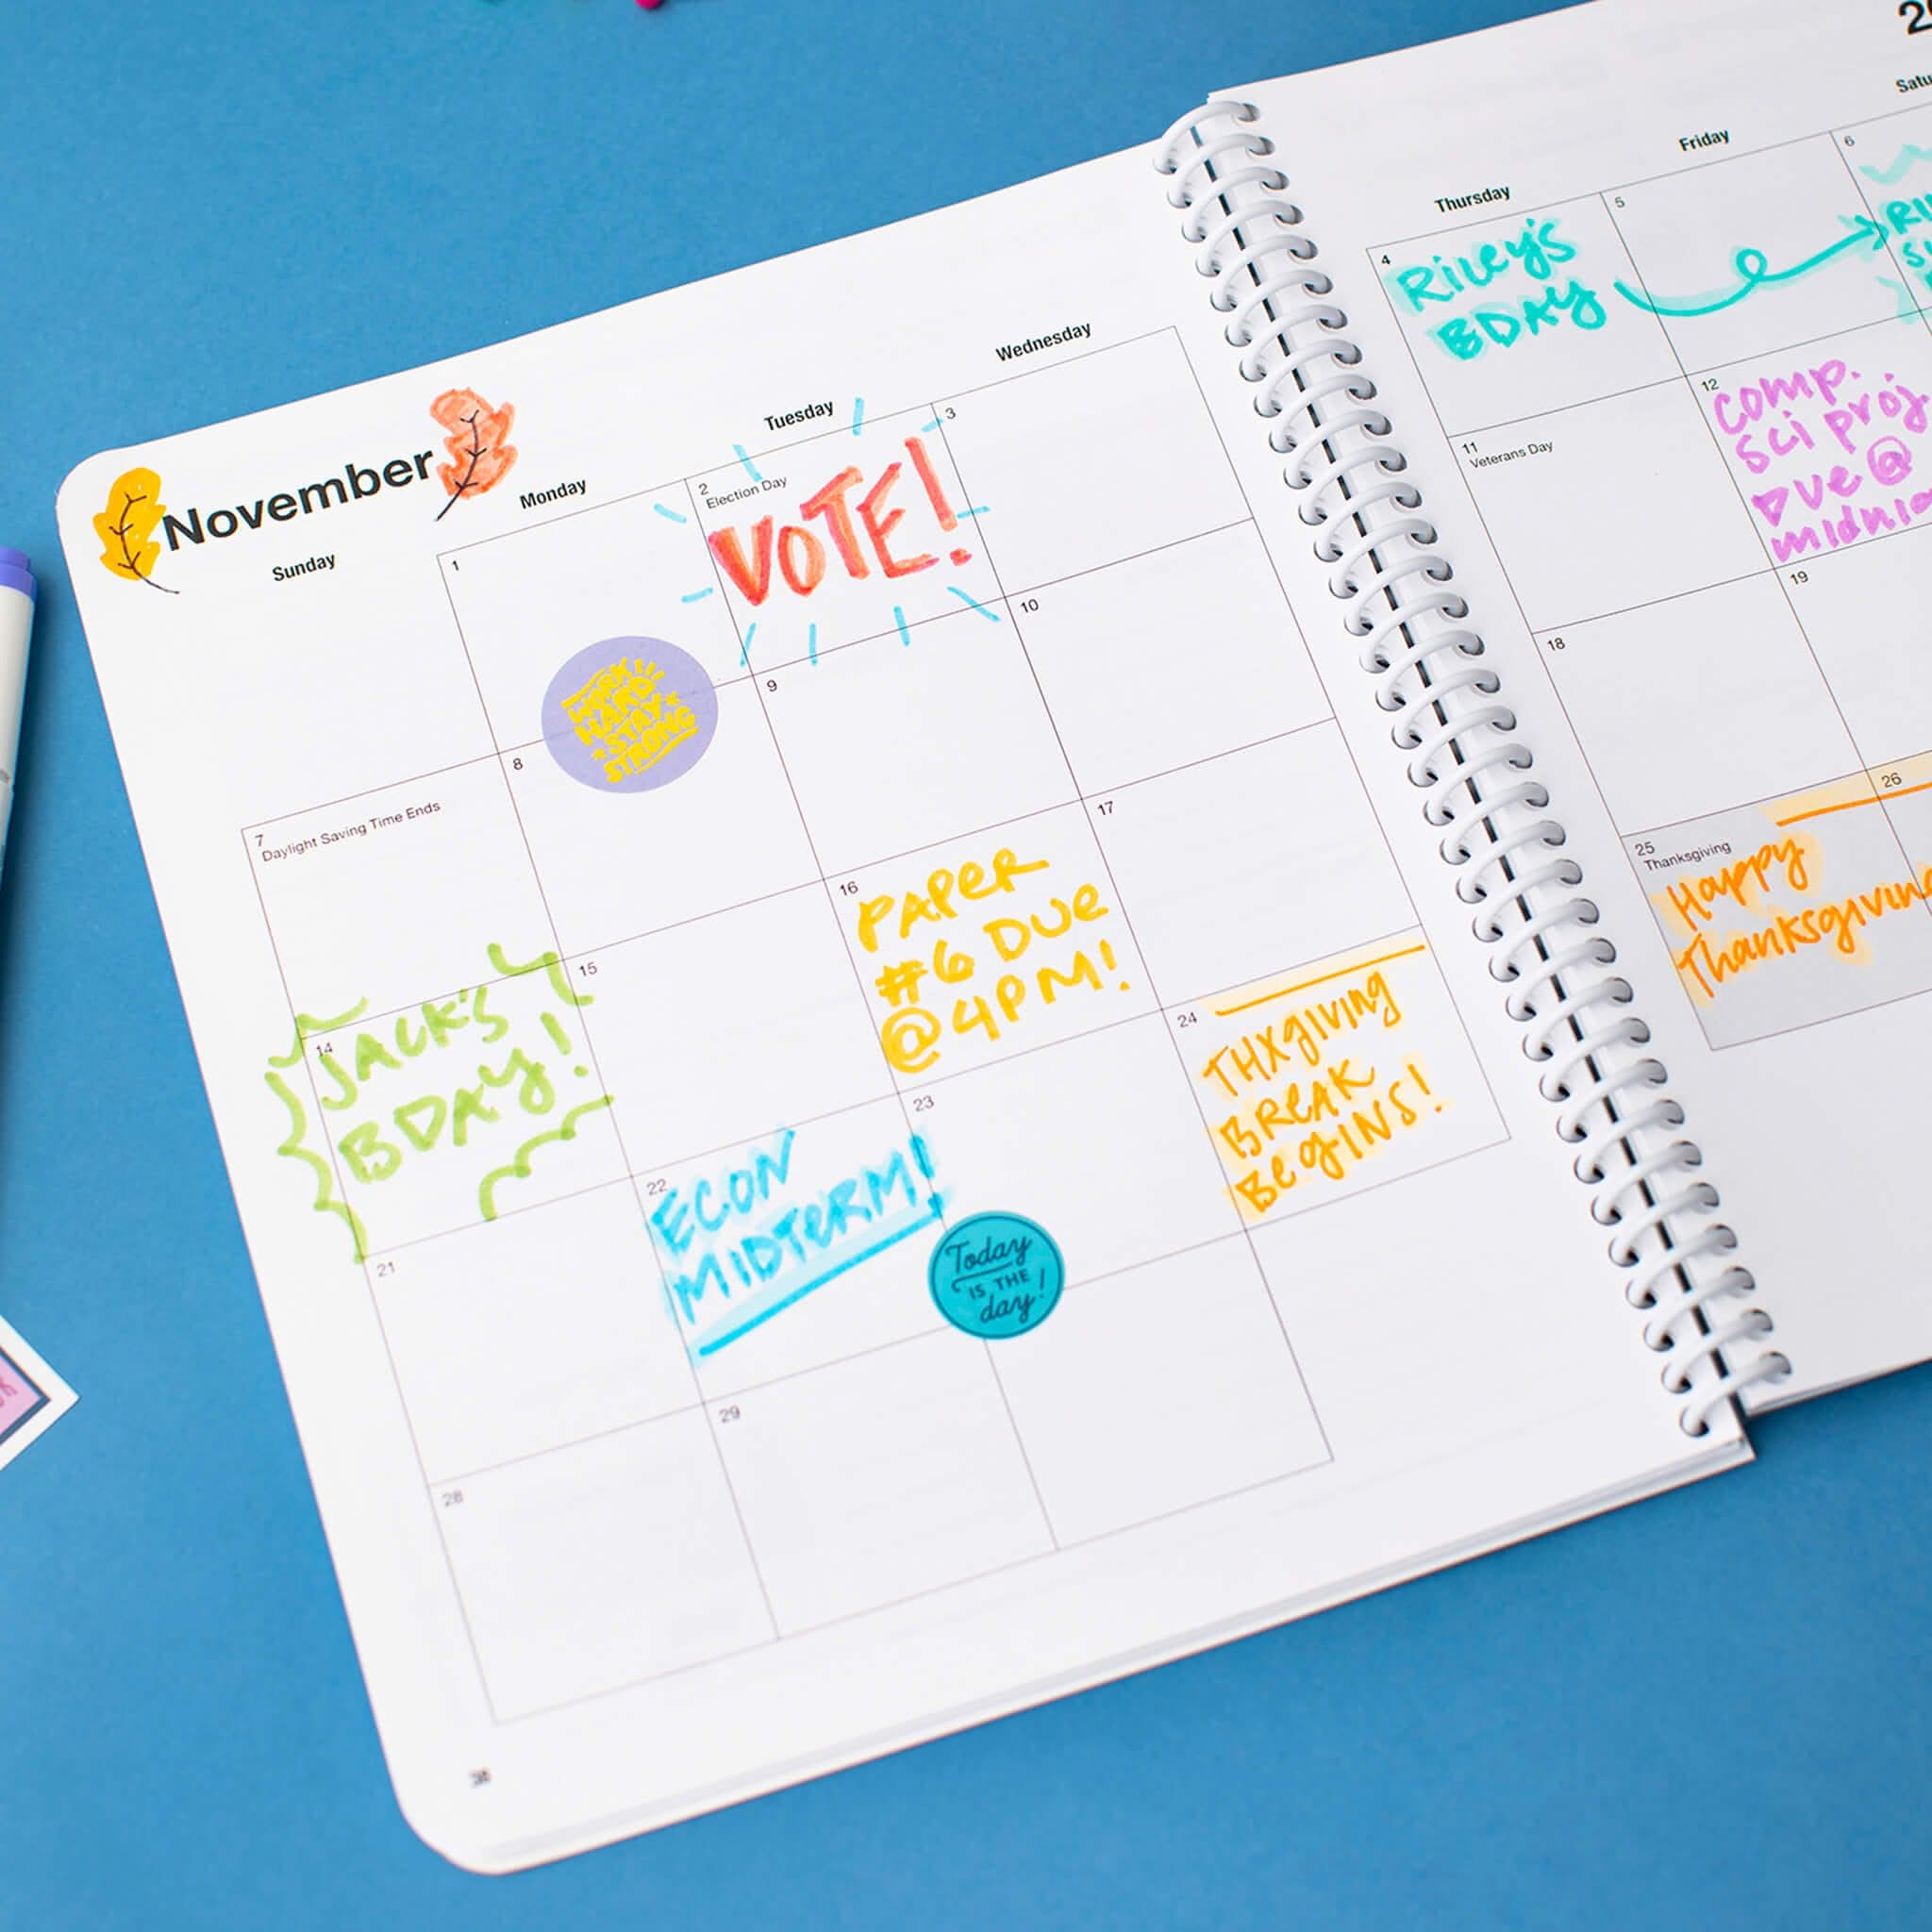 November
Sunday
Monday
Tuesday
Wednesday
Thursday
Friday
1
2
Election Day
VOTE!
3
4
Riley's
BDAY
5
6
7
Daylight Saving Time Ends
8
WORK
HARD
STAY
STRONG
9
10
11
Veterans Day
12
Comp.
Sci proj
Due @
14
JACK'S
BDAY!
15
16
PAPER
#6 DUE
@ 4PM!
17
18
19
21
22
ECON
MIDTERM!
23
Today
IS THE
day!
24
THXgiving
BREAK
BegINS!
25
Thanksgiving
Happy
Thanksgiving
26
28
29